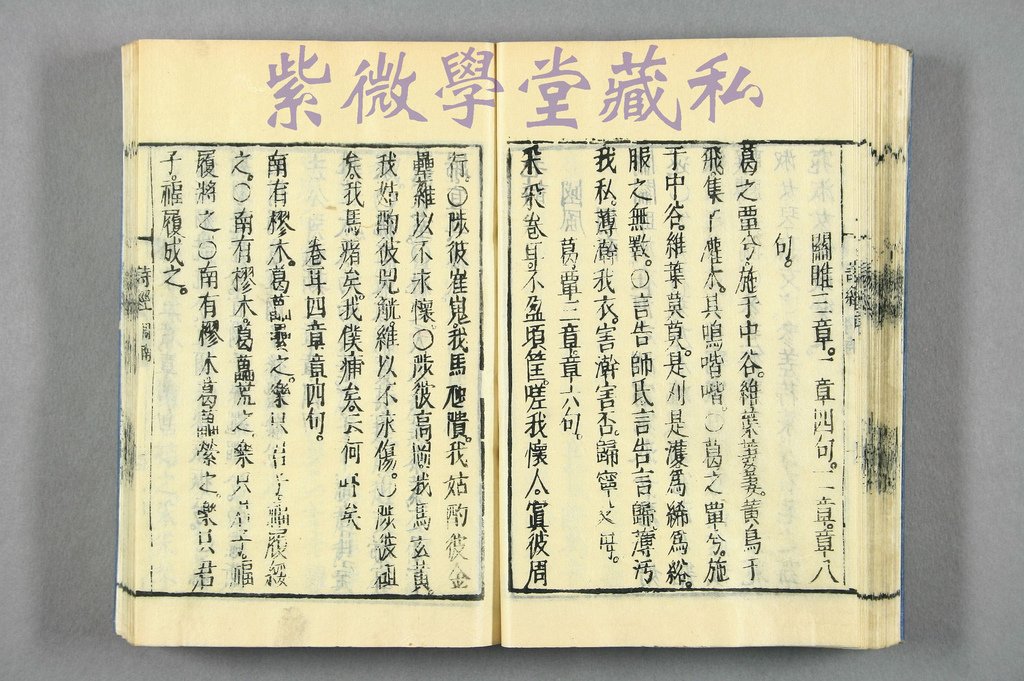 紫微學堂藏私
關雎三章。一章四句。二章。章八
句。
葛之覃兮。施于中谷。維葉萋萋。黃鳥于
飛集于灌木。其鳴喈喈。○葛之覃兮。施
于中谷。維葉莫莫。是刈是濩為絺為綌。
服之無斁。○言告師氏言告言歸薄污
我私。薄澣我衣。害澣害否。歸寧父母。
葛覃三章。章六句。
采采卷耳。不盈頃筐。嗟我懷人。寘彼周
行。○陟彼崔嵬。我馬虺隤。我姑酌彼金
罍維以不永懷。○陟彼高岡。我馬玄黃。
我姑酌彼兕觥。維以不永傷。○陟彼砠
矣。我馬瘏矣。我僕痡矣。云何吁矣
卷耳四章。章四句。
南有樛木。葛藟纍之。樂只君子。福履綏
之。○南有樛木。葛藟荒之。樂只君子。福
履將之○南有樛木葛藟縈之。樂只君
子。福履成之。
詩經 周南